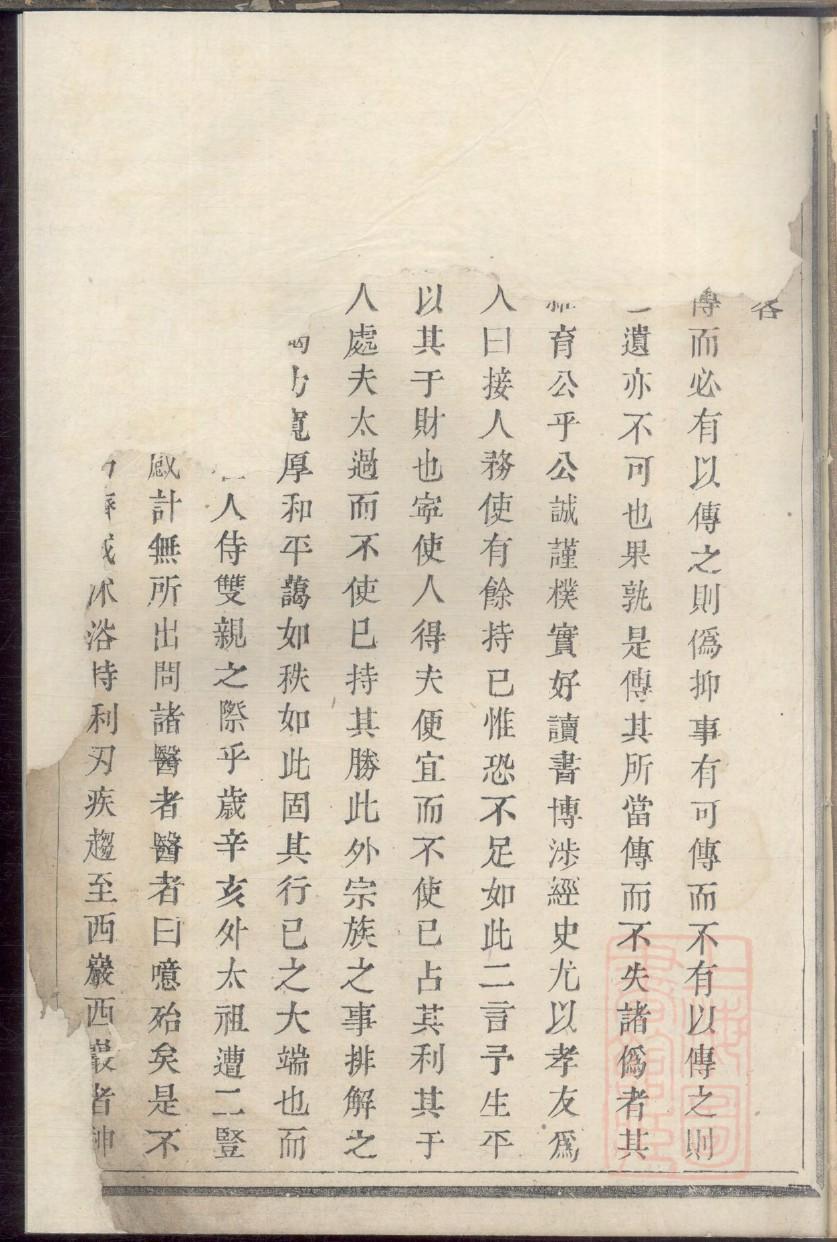 傳而必有以傳之則僞抑事有可傳而不有以傳之則
遺亦不可也果孰是傳其所當傳而不失諸僞者其
育公乎公誠謹樸實好讀書博涉經史尤以孝友爲
人曰接人務使有餘持己惟恐不足如此二言予生平
以其于財也寧使人得夫便宜而不使已占其利其于
人處夫太過而不使已持其勝此外宗族之事排解之
方寬厚和平藹如秩如此固其行已之大端也而
人侍雙親之際乎歲辛亥外太祖遭二豎
計無所出問諸醫者醫者曰噫殆矣是不
沐浴持利刃疾趨至西巖西巖者神